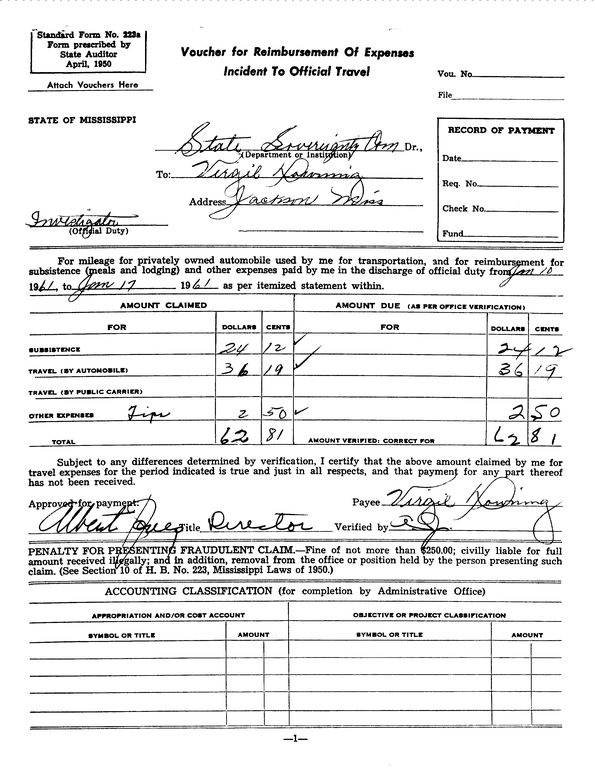 Standard Form No. 223a
Form prescribed by
State Auditor
April, 1950
Attach Vouchers Here
Voucher for Reimbursement Of Expenses
Incident To Official Travel
Vou. No.
File
STATE OF MISSISSIPPI
RECORD OF PAYMENT
Date
Req. No.
Check No.
Fund
State Sovereignty Com Dr.,
(Department or Institution)
To: Virgil Downing
Address Jackson Miss
Investigator
(Official Duty)
For mileage for privately owned automobile used by me for transportation, and for reimbursement for
subsistence (meals and lodging) and other expenses paid by me in the discharge of official duty from Jan 10
1961, to Jan 17 1961 as per itemized statement within.
AMOUNT CLAIMED AMOUNT DUE (AS PER OFFICE VERIFICATION)
FOR DOLLARS CENTS FOR DOLLARS CENTS
SUBSISTENCE 24 12 ✓ 24 12
TRAVEL (BY AUTOMOBILE) 36 19 ✓ 36 19
TRAVEL (BY PUBLIC CARRIER)
OTHER EXPENSES Tips 2 50 ✓ 2 50
TOTAL 62 81 AMOUNT VERIFIED: CORRECT FOR 62 81
Subject to any differences determined by verification, I certify that the above amount claimed by me for
travel expenses for the period indicated is true and just in all respects, and that payment for any part thereof
has not been received.
Approved for payment: Payee Virgil Downing
Albert Jones Title Director Verified by
PENALTY FOR PRESENTING FRAUDULENT CLAIM.—Fine of not more than $250.00; civilly liable for full
amount received illegally; and in addition, removal from the office or position held by the person presenting such
claim. (See Section 10 of H. B. No. 223, Mississippi Laws of 1950.)
ACCOUNTING CLASSIFICATION (for completion by Administrative Office)
APPROPRIATION AND/OR COST ACCOUNT OBJECTIVE OR PROJECT CLASSIFICATION
SYMBOL OR TITLE AMOUNT SYMBOL OR TITLE AMOUNT
—1—